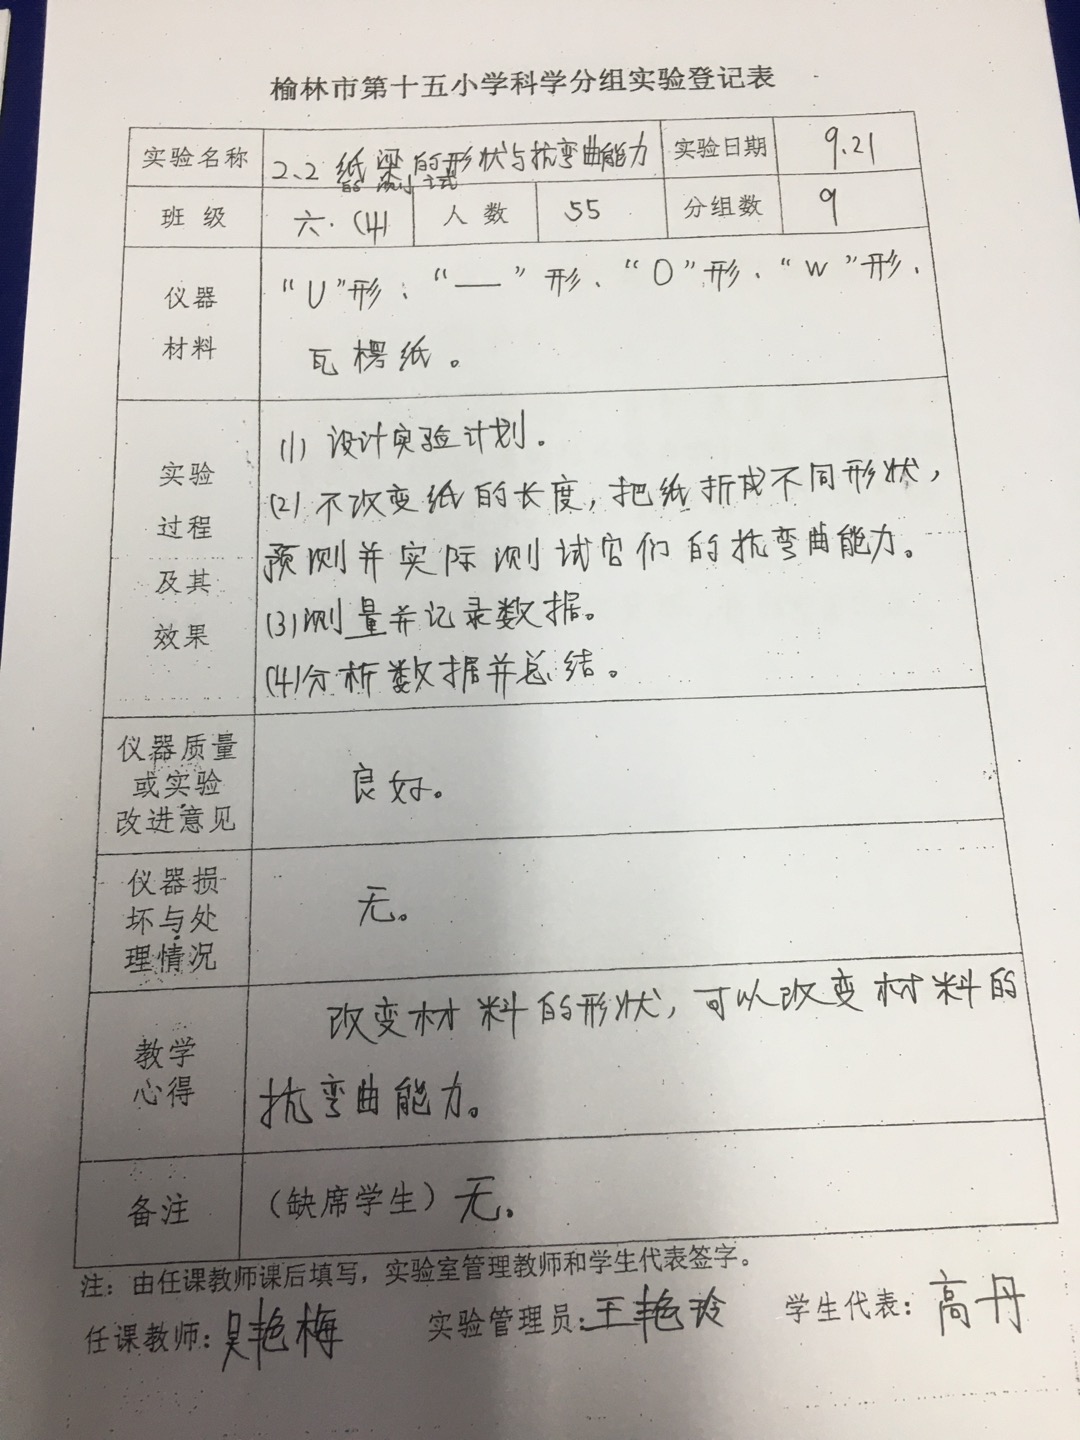 榆林市第十五小学科学分组实验登记表
实验名称 2.2 纸梁的形状与抗弯曲能力 实验日期 9.21
的测试
班 级 六.(4) 人 数 55 分组数 9
仪器 “U”形、“—”形、“O”形、“W”形、
材料 瓦楞纸。
(1) 设计实验计划。
实验 (2) 不改变纸的长度,把纸折成不同形状,
过程 预测并实际测试它们的抗弯曲能力。
及其 (3) 测量并记录数据。
效果 (4) 分析数据并总结。
仪器质量
或实验 良好。
改进意见
仪器损
坏与处 无。
理情况
改变材料的形状,可以改变材料的
教学
心得 抗弯曲能力。
备注 (缺席学生) 无。
注:由任课教师课后填写,实验室管理教师和学生代表签字。
任课教师:吴艳梅 实验管理员:王艳玲 学生代表:高丹